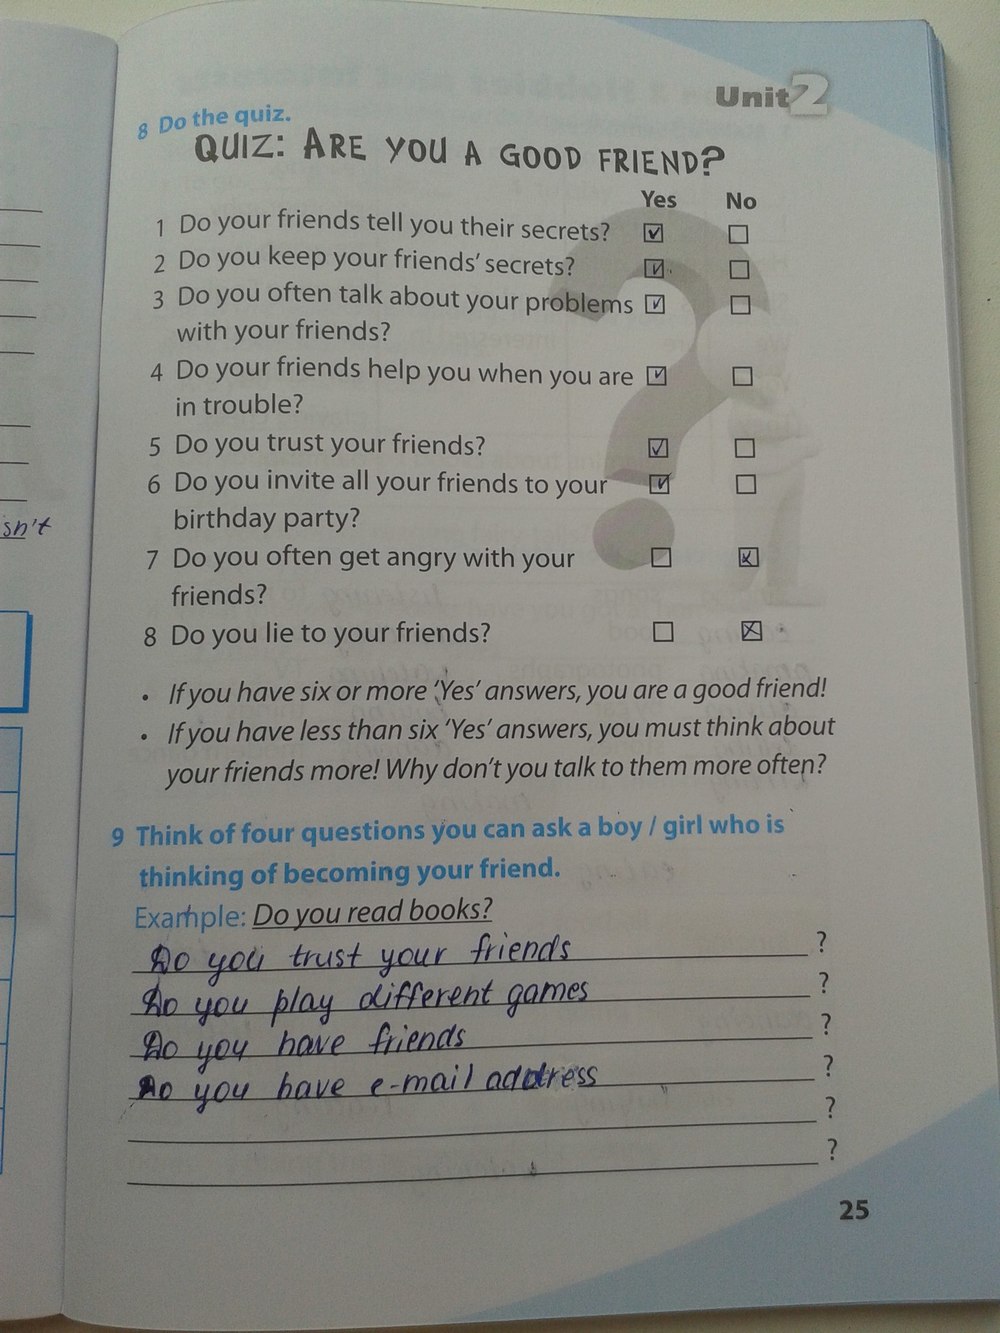 Unit 2
8 Do the quiz.
QUIZ: ARE YOU A GOOD FRIEND?
Yes No
1 Do your friends tell you their secrets?
2 Do you keep your friends' secrets?
3 Do you often talk about your problems
with your friends?
4 Do your friends help you when you are
in trouble?
5 Do you trust your friends?
6 Do you invite all your friends to your
birthday party?
7 Do you often get angry with your
friends?
8 Do you lie to your friends?
• If you have six or more 'Yes' answers, you are a good friend!
• If you have less than six 'Yes' answers, you must think about
your friends more! Why don't you talk to them more often?
9 Think of four questions you can ask a boy / girl who is
thinking of becoming your friend.
Example: Do you read books?
Do you trust your friends ?
Do you play different games ?
Do you have friends ?
Do you have e-mail address ?
?
?
25
sn't